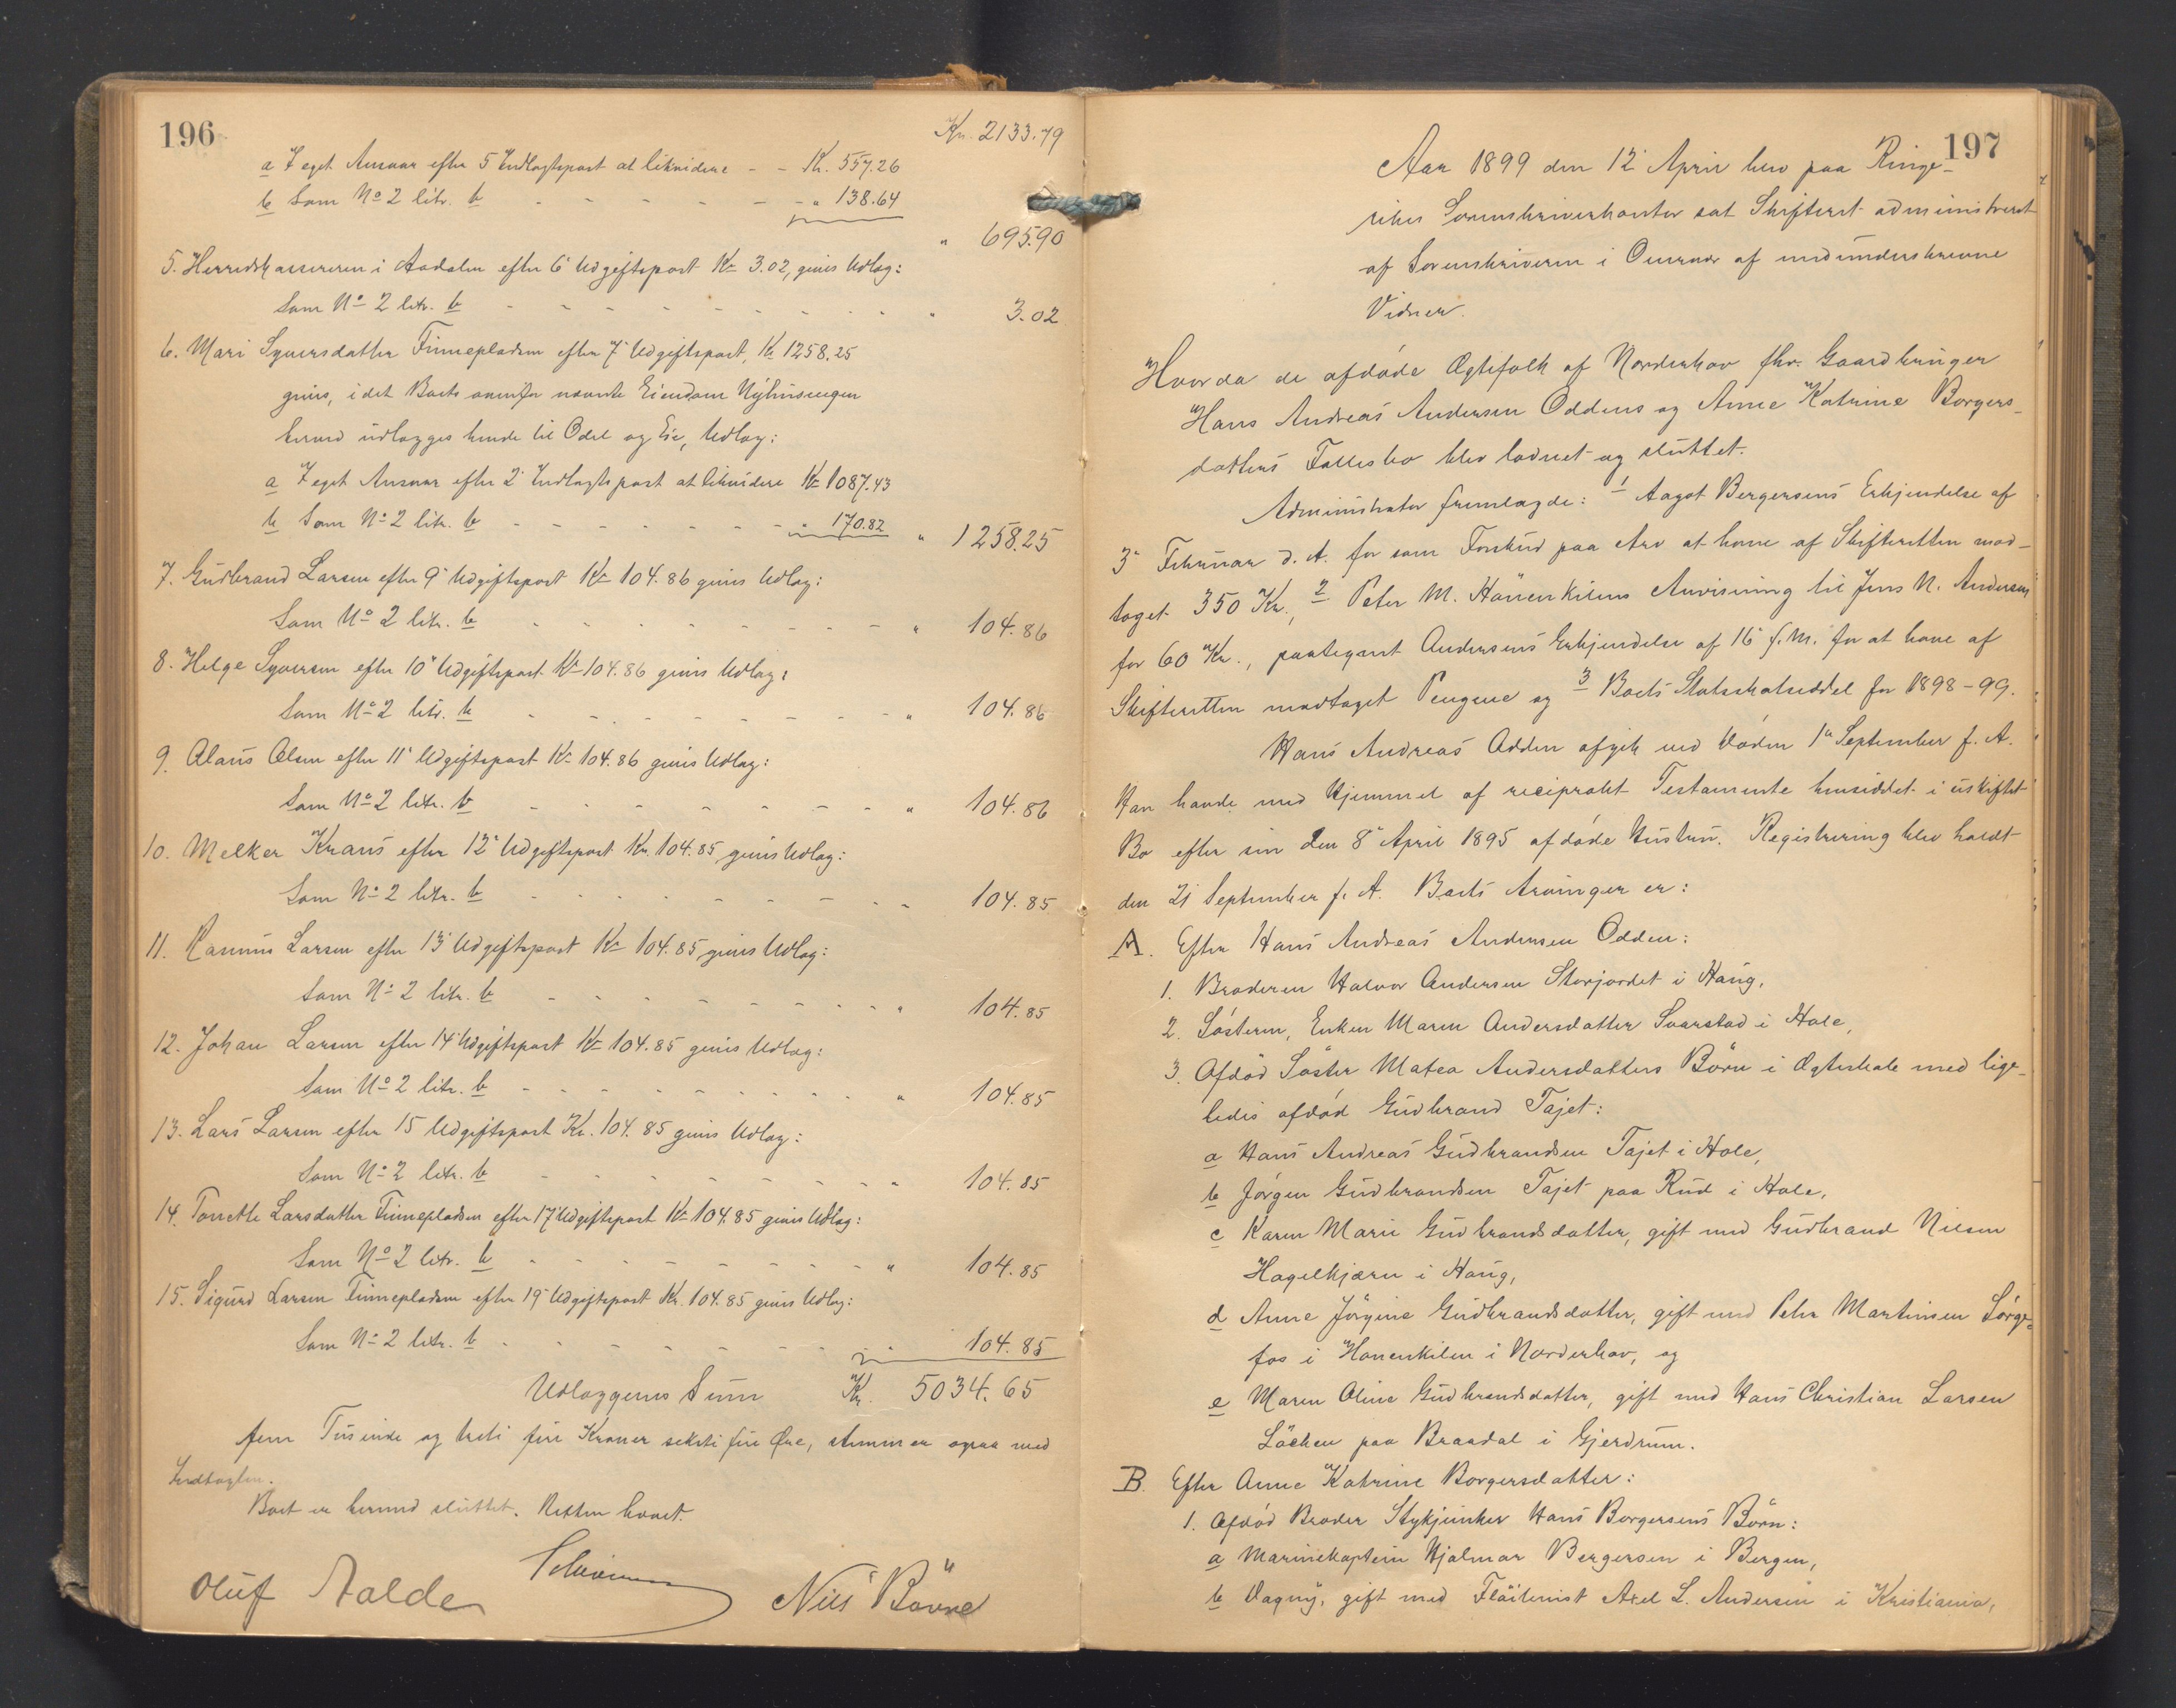 196
Kr. 2133.79
a I eget Ansvar efter 5 Indtægtspost at likvidere - - Kr. 557.26
b Som No 2 litr. b - - - - - - " 138.64
" 695.90
5. Herredskassereren i Aadalen efter 6' Udgiftspost Kr 3.02, gives Udlæg:
Som No 2 litr. b - - - - - - - - " 3.02
6. Mari Syversdatter Finnepladsen efter 7' Udgiftspost, Kr 1258.25
gives, idet Boets ovenfor nævnte Eiendom Nyhusengen
herved udlægges hende til Odel og Eie, Udlæg:
a I eget Ansvar efter 2' Indtægtspost at likvidere Kr 1087.43
b Som No 2 litr. b - - - - - - - " 170.82 " 1258.25
7. Gudbrand Larsen efter 9' Udgiftspost Kr 104.86 gives Udlæg:
Som No 2 litr. b - - - - - - - - " 104.86
8. Helge Syversen efter 10' Udgiftspost Kr 104.86 gives Udlæg:
Som No 2 litr. b - - - - - - - - " 104.86
9. Olaus Olsen efter 11' Udgiftspost Kr 104.86 gives Udlæg:
Som No 2 litr. b - - - - - - - - " 104.86
10. Melker Kraus efter 12' Udgiftspost Kr. 104.85 gives Udlæg:
Som No 2 litr. b - - - - - - - - 104.85
11. Rasmus Larsen efter 13' Udgiftspost Kr 104.85 gives Udlæg:
Som No 2 litr. b - - - - - - - - " 104.85
12. Johan Larsen efter 14' Udgiftspost Kr 104.85 gives Udlæg:
Som No 2 litr. b - - - - - - - - " 104.85
13. Lars Larsen efter 15 Udgiftspost Kr. 104.85 gives Udlæg:
Som No 2 litr. b - - - - - - - - " 104.85
14. Tonette Larsdatter Finnepladsen efter 17' Udgiftspost Kr 104.85 gives Udlæg:
Som No 2 litr. b - - - - - - - - " 104.85
15. Sigurd Larsen Finnepladsen efter 19' Udgiftspost Kr. 104.85 gives Udlæg:
Som No 2 litr. b - - - - - - - - 104.85
Udlæggenes Sum Kr. 5034.65
fem Tusinde og treti fire Kroner seksti fire Øre, stemmer ogsaa med
Indtægten.
Boet er hermed sluttet. Retten hævet.
Oluf Aalde Nils Børve
197
Aar 1899 den 12' April blev paa Ringe-
rikes Sorenskriverkontor sat Skifteret administreret
af Sorenskriveren i Overvær af medunderskrevne
Vidner.
Hvorda de afdøde Ægtefolk af Norderhov fhv. Gaardbruger
Hans Andreas Andersen Oddens og Anne Katrine Borgers-
datters Fællesbo blev lodnet og sluttet.
Administrator fremlagde: 1 Aagot Bergersens Erkjendelse af
3' Februar d. A. for som Forskud paa Arv at have af Skifteretten mod-
taget 350 Kr., 2 Peter M. Hønenkilens Anvisning til Jens N. Andersen
for 60 Kr., paategnet Andersens Erkjendelse af 16' f. M. for at have af
Skifteretten modtaget Pengene og 3 Boets Statsskatseddel for 1898-99.
Hans Andreas Odden afgik ved Døden 1' September f. A.
Han havde med Hjemmel af reciprokt Testamente hensiddet i uskiftet
Bo efter sin den 8' April 1895 afdøde Hustru. Registrering blev holdt
den 21 September f. A. Boets Arvinger er:
A. Efter Hans Andreas Andersen Odden:
1. Broderen Halvor Andersen Storjordet i Haug,
2. Søsteren, Enken Maren Andersdatter Svarstad i Hole,
3. Afdød Søster Matea Andersdatters Børn i Ægteskab med lige-
ledes afdød Gudbrand Tajet:
a Hans Andreas Gudbrandsen Tajet i Hole,
b Jørgen Gudbrandsen Tajet paa Rud i Hole,
c Karen Marie Gudbrandsdatter, gift med Gudbrand Nilsen
Hagelkjærn i Haug,
d Anne Jørgine Gudbrandsdatter, gift med Peter Martinsen Sørge-
fos i Hønenkilen i Norderhov, og
e Maren Oline Gudbrandsdatter, gift med Hans Christian Larsen
Løeken paa Braadal i Gjerdrum.
B. Efter Anne Katrine Borgersdatter:
1. Afdød Broder Stykjunker Hans Borgersens Børn:
a Marinekaptein Hjalmar Bergersen i Bergen,
b Dagny, gift med Fløitenist Axel L. Andersen i Kristiania,